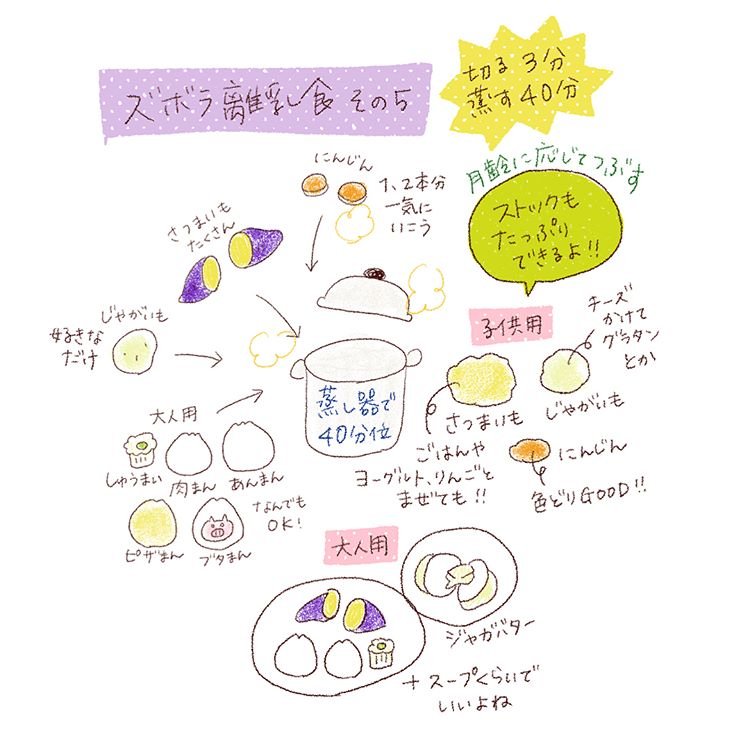 ズボラ離乳食 その5
切る 3分
蒸す 40分
にんじん
1、2本分
一気に
いこう
月齢に応じてつぶす
ストックも
たっぷり
できるよ!!
さつまいも
たくさん
じゃがいも
好きな
だけ
蒸し器で
40分位
大人用
しゅうまい
肉まん
あんまん
ピザまん
ブタまん
なんでも
OK!
子供用
さつまいも
ごはんや
ヨーグルト、りんごと
まぜても!!
じゃがいも
チーズ
かけて
グラタン
とか
にんじん
色どりGOOD!!
大人用
ジャガバター
+スープくらいで
いいよね